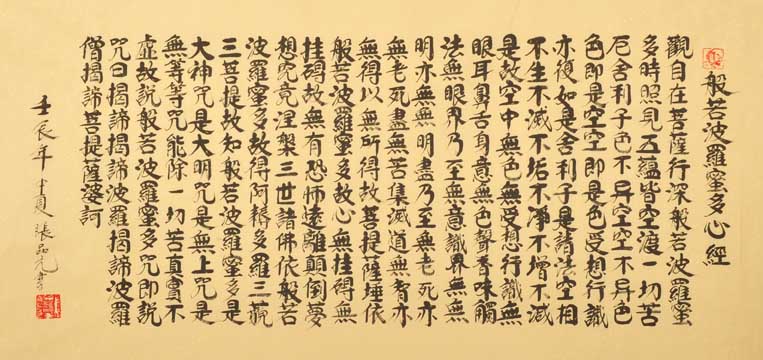 般若波羅蜜多心經
觀自在菩薩行深般若波羅蜜
多時照見五蘊皆空渡一切苦
厄舍利子色不异空空不异色
色即是空空即是色受想行識
亦復如是舍利子是諸法空相
不生不滅不垢不淨不增不減
是故空中無色無受想行識無
眼耳鼻舌身意無色聲香味觸
法無眼界乃至無意識界無無
明亦無無明盡乃至無老死亦
無老死盡無苦集滅道無智亦
無得以無所得故菩提薩埵依
般若波羅蜜多故心無挂碍無
挂碍故無有恐怖遠離顛倒夢
想究竟涅槃三世諸佛依般若
波羅蜜多故得阿耨多羅三藐
三菩提故知般若波羅蜜多是
大神咒是大明咒是無上咒是
無等等咒能除一切苦真實不
虛故說般若波羅蜜多咒即說
咒曰揭諦揭諦波羅揭諦波羅
僧揭諦菩提薩婆訶
壬辰年夏張